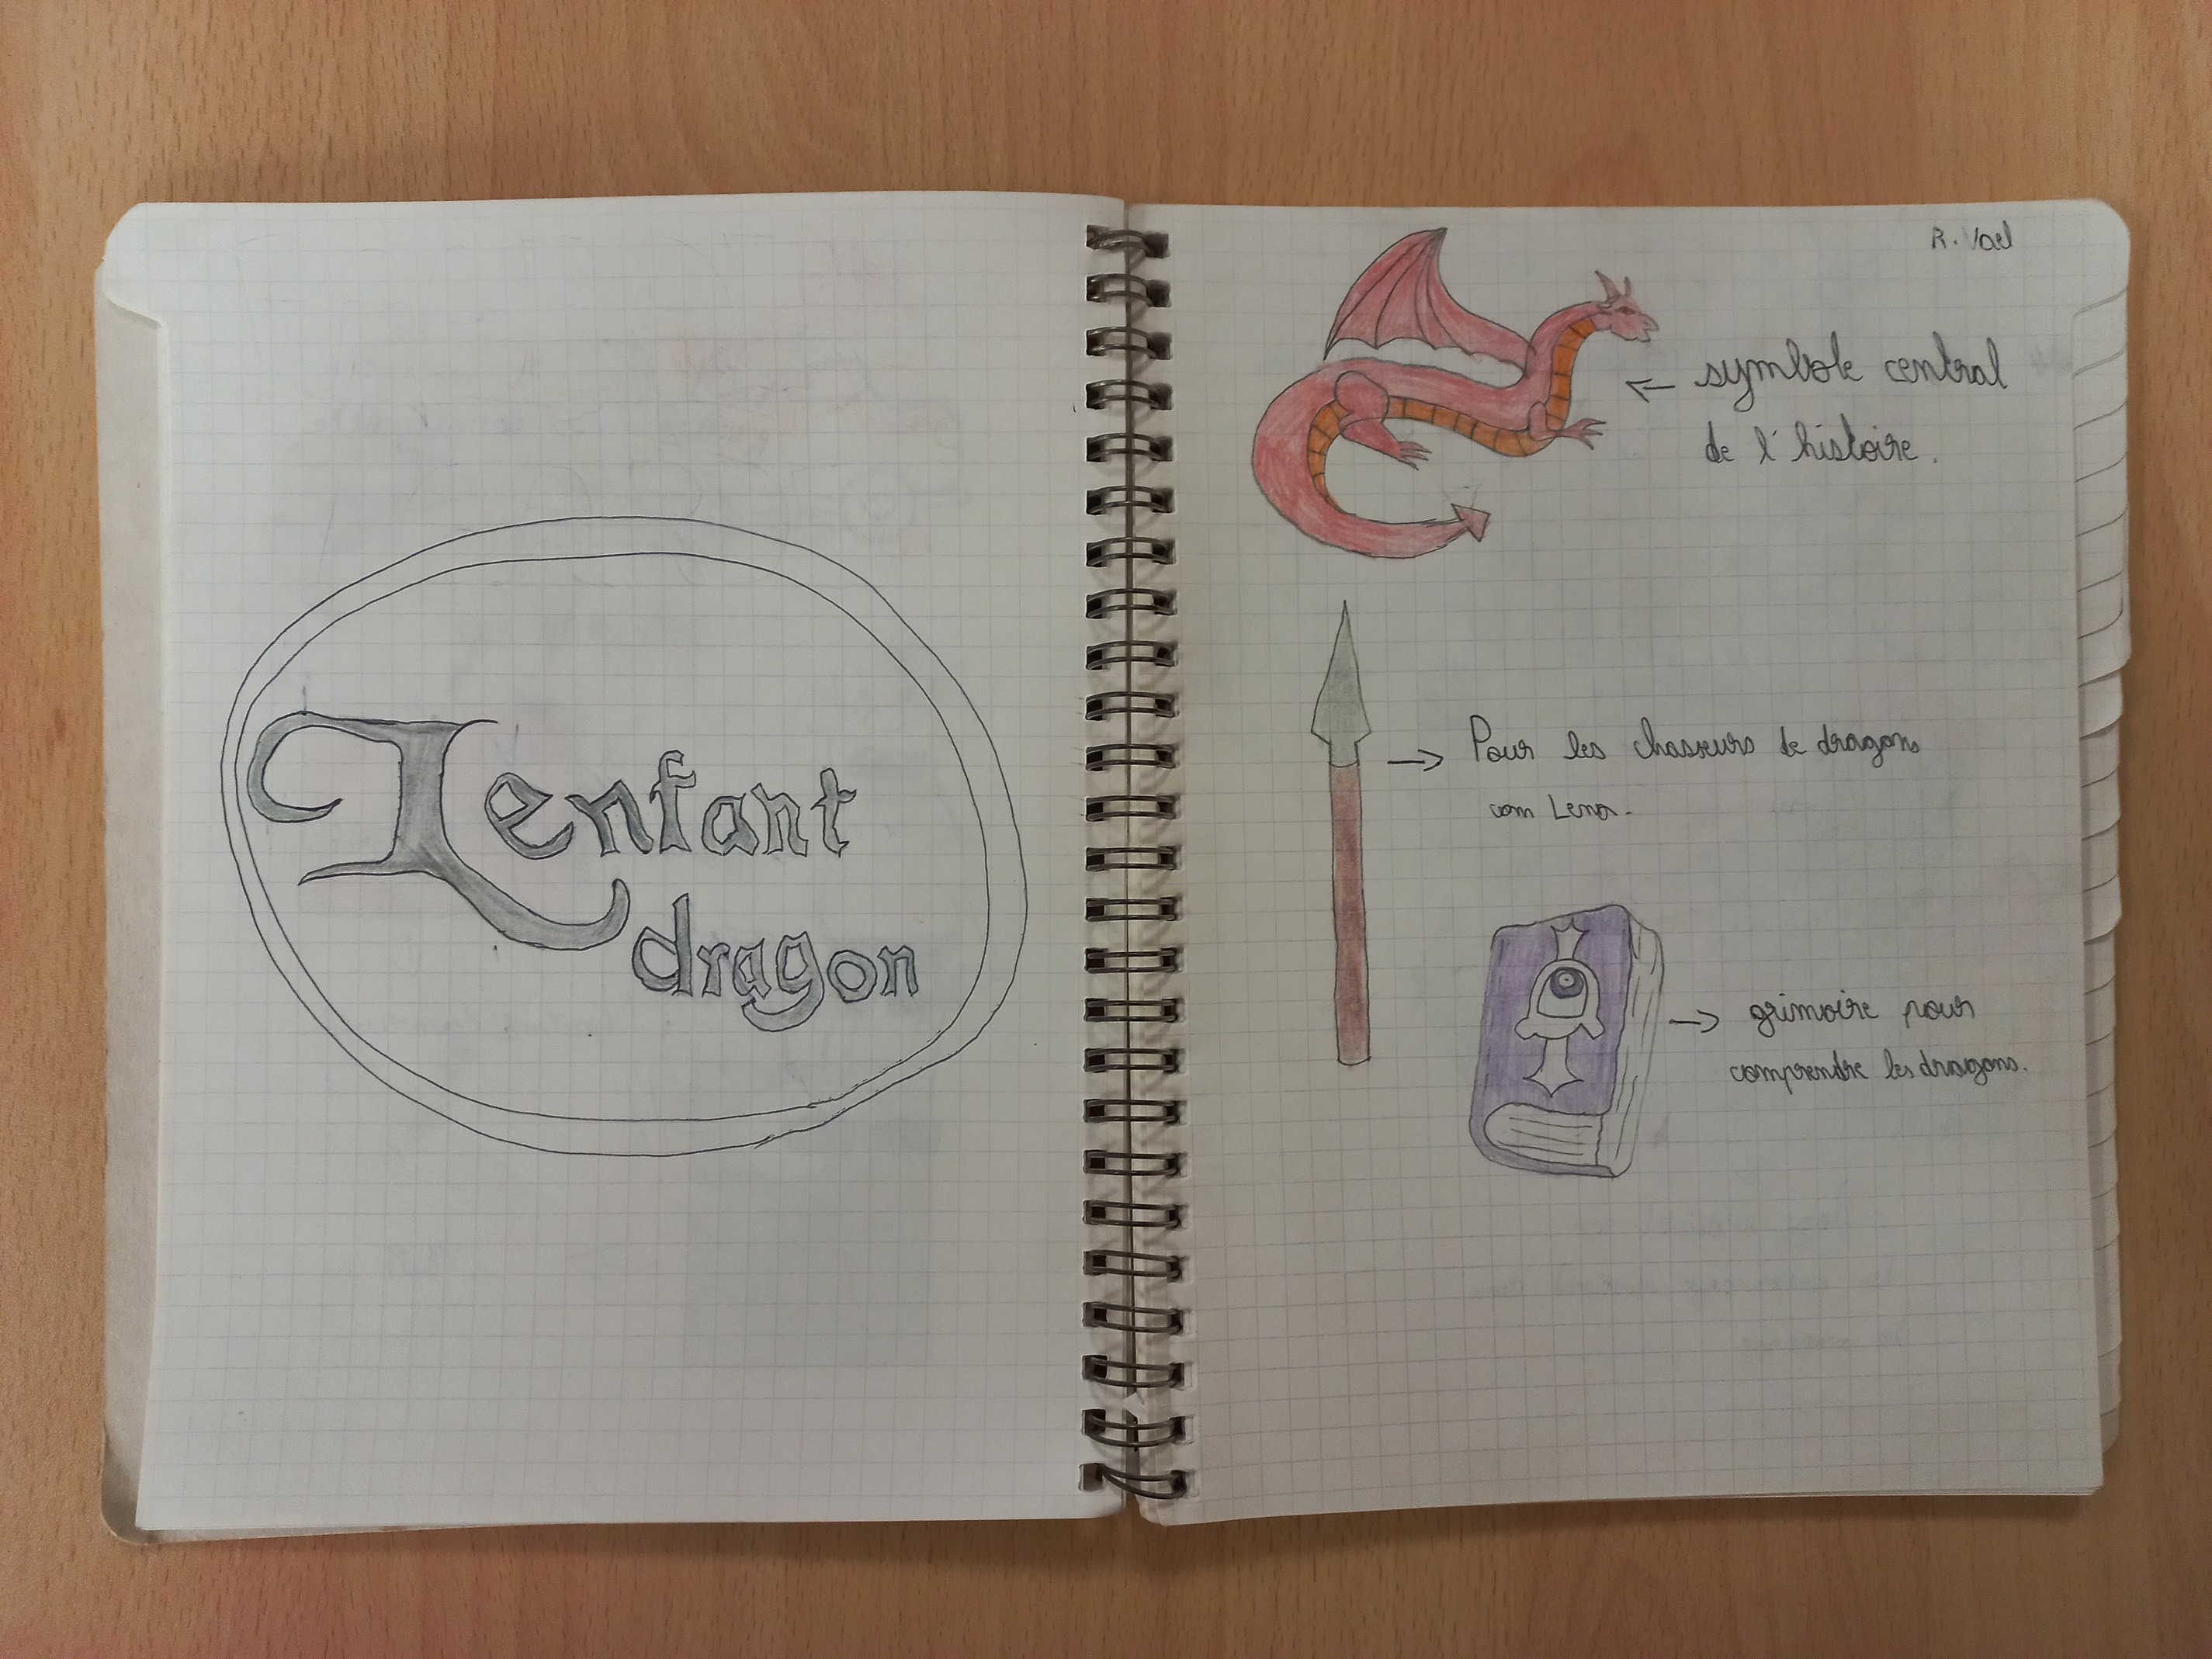 L'enfant
dragon
R. Vael
symbole central
de l'histoire.
Pour les chasseurs de dragons
com Lena.
grimoire pour
comprendre les dragons.